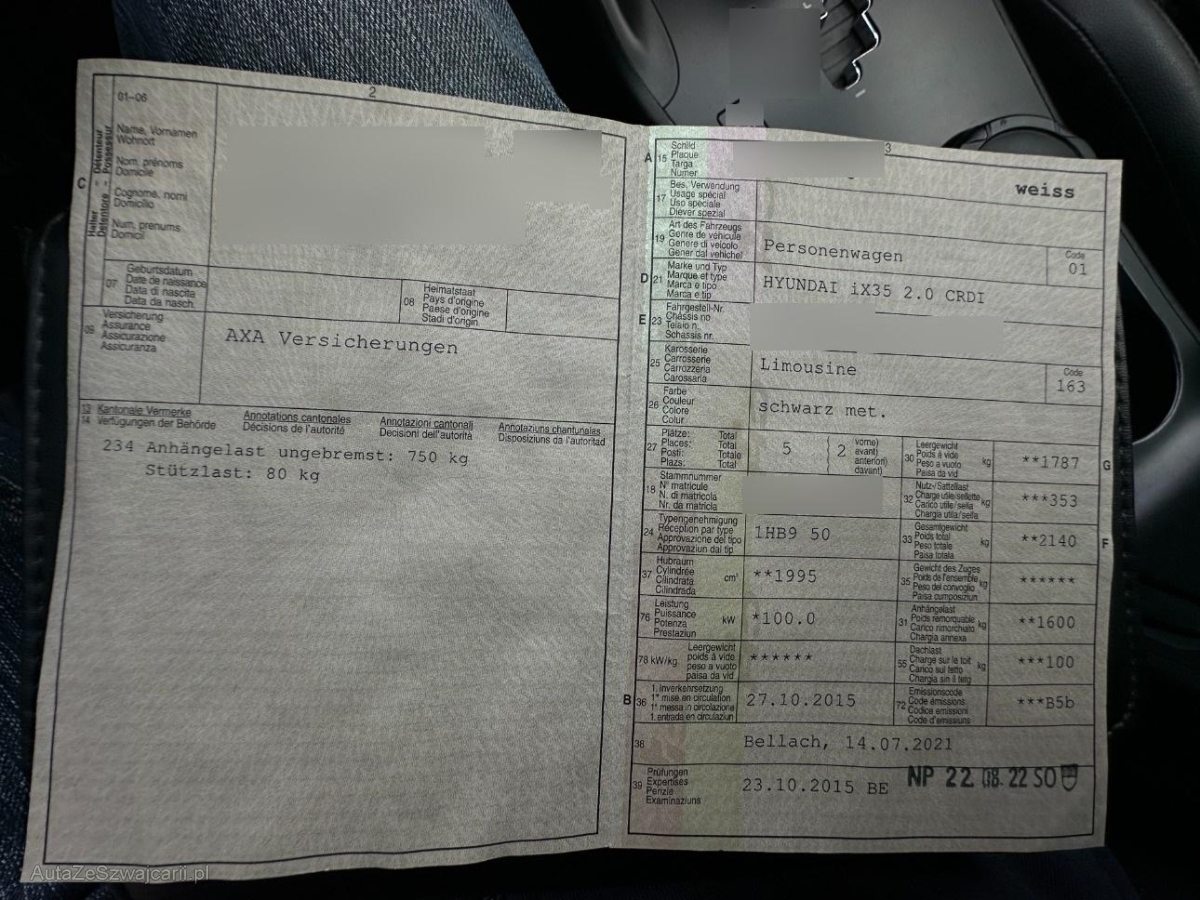 2
01-06
C
Halter
Détenteur
Detentore
Possessur
Name, Vornamen
Wohnort
Nom, prénoms
Domicile
Cognome, nomi
Domicilio
Num, prenums
Domicil
07
Geburtsdatum
Date de naissance
Data di nascita
Data da nasch.
08
Heimatstaat
Pays d'origine
Paese d'origine
Stadi d'origin.
09
Versicherung
Assurance
Assicurazione
Assicuranza
AXA Versicherungen
13 Kantonale Vermerke Annotations cantonales Annotazioni cantonali Annotaziuns chantunalas
14 Verfügungen der Behörde Décisions de l'autorité Decisioni dell'autorità Disposiziuns da l'autoritad
234 Anhängelast ungebremst: 750 kg
Stützlast: 80 kg
3
A 15
Schild
Plaque
Targa
Numer
weiss
17
Bes. Verwendung
Usage spécial
Uso speciale
Diever spezial
19
Art des Fahrzeugs
Genre de véhicule
Genere di veicolo
Gener dal vehichel
Personenwagen
Code
01
D 21
Marke und Typ
Marque et type
Marca e tipo
Marca e tip
HYUNDAI iX35 2.0 CRDI
E 23
Fahrgestell-Nr.
Châssis no
Telaio n.
Schassis nr.
25
Karosserie
Carrosserie
Carrozzeria
Carossaria
Limousine
Code
163
26
Farbe
Couleur
Colore
Colur
schwarz met.
27
Plätze: Total
Places: Total
Posti: Totale
Plazs: Total
5
2
vorne)
avant)
anteriori)
davant)
30
Leergewicht
Poids à vide
Peso a vuoto
Paisa da vid
kg
**1787
G
18
Stammnummer
N° matricule
N. di matricola
Nr. da matricla
32
Nutz-/Sattellast
Charge utile/sellette
Carico utile/sella
Chargia utila/sella
kg
***353
24
Typengenehmigung
Réception par type
Approvazione del tipo
Approvaziun dal tip
1HB9 50
33
Gesamtgewicht
Poids total
Peso totale
Paisa totala
kg
**2140
F
37
Hubraum
Cylindrée
Cilindrata
Cilindrada
cm³
**1995
35
Gewicht des Zuges
Poids de l'ensemble
Peso del convoglio
Paisa cumposiziun
kg
******
76
Leistung
Puissance
Potenza
Prestaziun
kW
*100.0
31
Anhängelast
Poids remorquable
Carico rimorchiato
Chargia annexa
kg
**1600
78 kW/kg
Leergewicht
poids à vide
peso a vuoto
paisa da vid
******
55
Dachlast
Charge sur le toit
Carico sul tetto
Chargia sin il tetg
kg
***100
B 36
1. Inverkehrsetzung
1re mise en circulation
1a messa in circolazione
1. entrada en circulaziun
27.10.2015
72
Emissionscode
Code émissions
Codice emissioni
Code d'emissiuns
***B5b
38
Bellach, 14.07.2021
39
Prüfungen
Expertises
Perizie
Examinaziuns
23.10.2015 BE
NP 22. 08. 22 SO
AutaZeSzwajcarii.pl